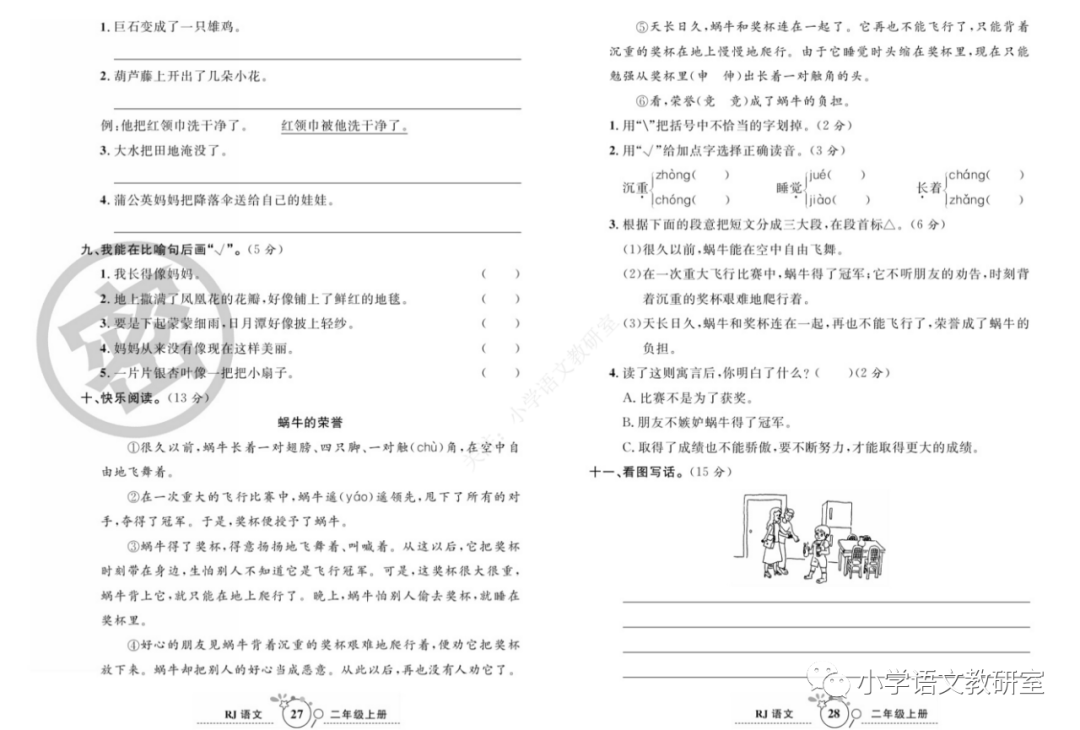 1.巨石变成了一只雄鸡。
2.葫芦藤上开出了几朵小花。
例:他把红领巾洗干净了。 红领巾被他洗干净了。
3.大水把田地淹没了。
4.蒲公英妈妈把降落伞送给自己的娃娃。
九、我能在比喻句后画“√”。(5分)
1.我长得像妈妈。 ( )
2.地上撒满了凤凰花的花瓣,好像铺上了鲜红的地毯。 ( )
3.要是下起蒙蒙细雨,日月潭好像披上轻纱。 ( )
4.妈妈从来没有像现在这样美丽。 ( )
5.一片片银杏叶像一把把小扇子。 ( )
十、快乐阅读。(13分)
蜗牛的荣誉
①很久以前,蜗牛长着一对翅膀、四只脚、一对触(chù)角,在空中自
由地飞舞着。
②在一次重大的飞行比赛中,蜗牛遥(yáo)遥领先,甩下了所有的对
手,夺得了冠军。于是,奖杯便授予了蜗牛。
③蜗牛得了奖杯,得意扬扬地飞舞着、叫喊着。从这以后,它把奖杯
时刻带在身边,生怕别人不知道它是飞行冠军。可是,这奖杯很大很重,
蜗牛背上它,就只能在地上爬行了。晚上,蜗牛怕别人偷去奖杯,就睡在
奖杯里。
④好心的朋友见蜗牛背着沉重的奖杯艰难地爬行着,便劝它把奖杯
放下来。蜗牛却把别人的好心当成恶意。从此以后,再也没有人劝它了。
RJ 语文 27 二年级上册
⑤天长日久,蜗牛和奖杯连在一起了。它再也不能飞行了,只能背着
沉重的奖杯在地上慢慢地爬行。由于它睡觉时头缩在奖杯里,现在只能
勉强从奖杯里(申 伸)出长着一对触角的头。
⑥看,荣誉(竞 竟)成了蜗牛的负担。
1.用“\”把括号中不恰当的字划掉。(2分)
2.用“√”给加点字选择正确读音。(3分)
zhòng( ) jué( ) cháng( )
沉重 睡觉 长着
chóng( ) jiào( ) zhǎng( )
3.根据下面的段意把短文分成三大段,在段首标△。(6分)
(1)很久以前,蜗牛能在空中自由飞舞。
(2)在一次重大飞行比赛中,蜗牛得了冠军;它不听朋友的劝告,时刻背
着沉重的奖杯艰难地爬行着。
(3)天长日久,蜗牛和奖杯连在一起,再也不能飞行了,荣誉成了蜗牛的
负担。
4.读了这则寓言后,你明白了什么?( )(2分)
A.比赛不是为了获奖。
B.朋友不嫉妒蜗牛得了冠军。
C.取得了成绩也不能骄傲,要不断努力,才能取得更大的成绩。
十一、看图写话。(15分)
RJ 语文 28 二年级上册
密
小学语文教研室
小学语文教研室